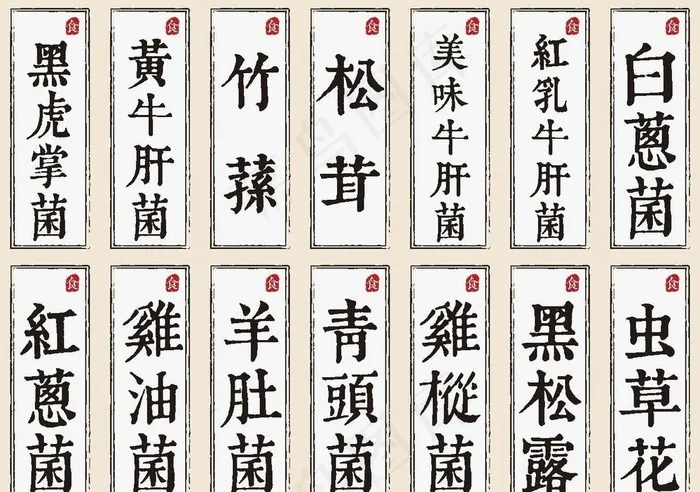 食
黑虎掌菌
食
黃牛肝菌
食
竹蓀
食
松茸
食
美味牛肝菌
食
紅乳牛肝菌
食
白蔥菌
食
紅蔥菌
食
雞油菌
食
羊肚菌
食
青頭菌
食
雞樅菌
食
黑松露
食
虫草花